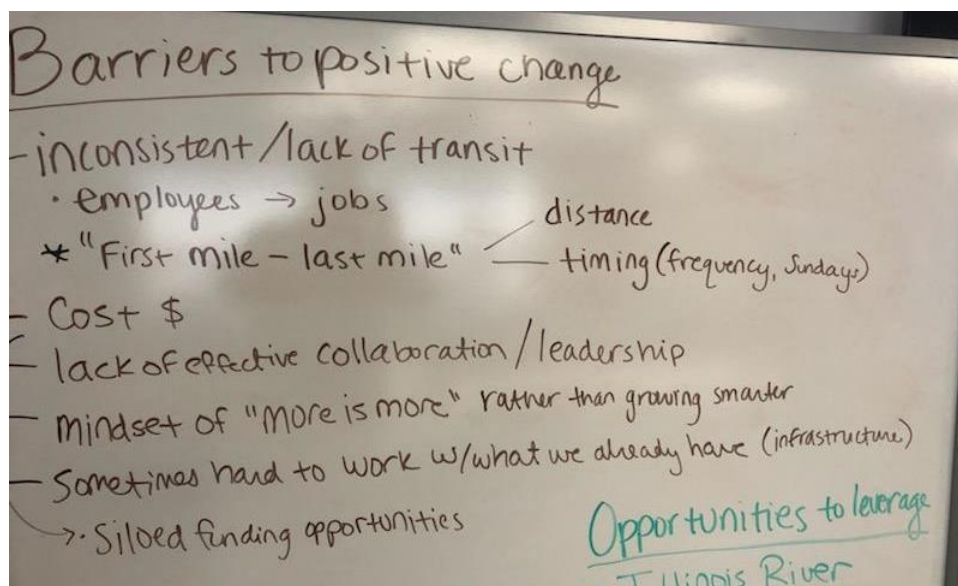 Barriers to positive change
- inconsistent/lack of transit
· employees → jobs
* "First mile - last mile"
distance
timing (frequency, Sundays)
- Cost $
- lack of effective collaboration/leadership
- mindset of "more is more" rather than growing smarter
- Sometimes hard to work w/what we already have (infrastructure)
→· Siloed funding opportunities
Opportunities to leverage
Illinois River